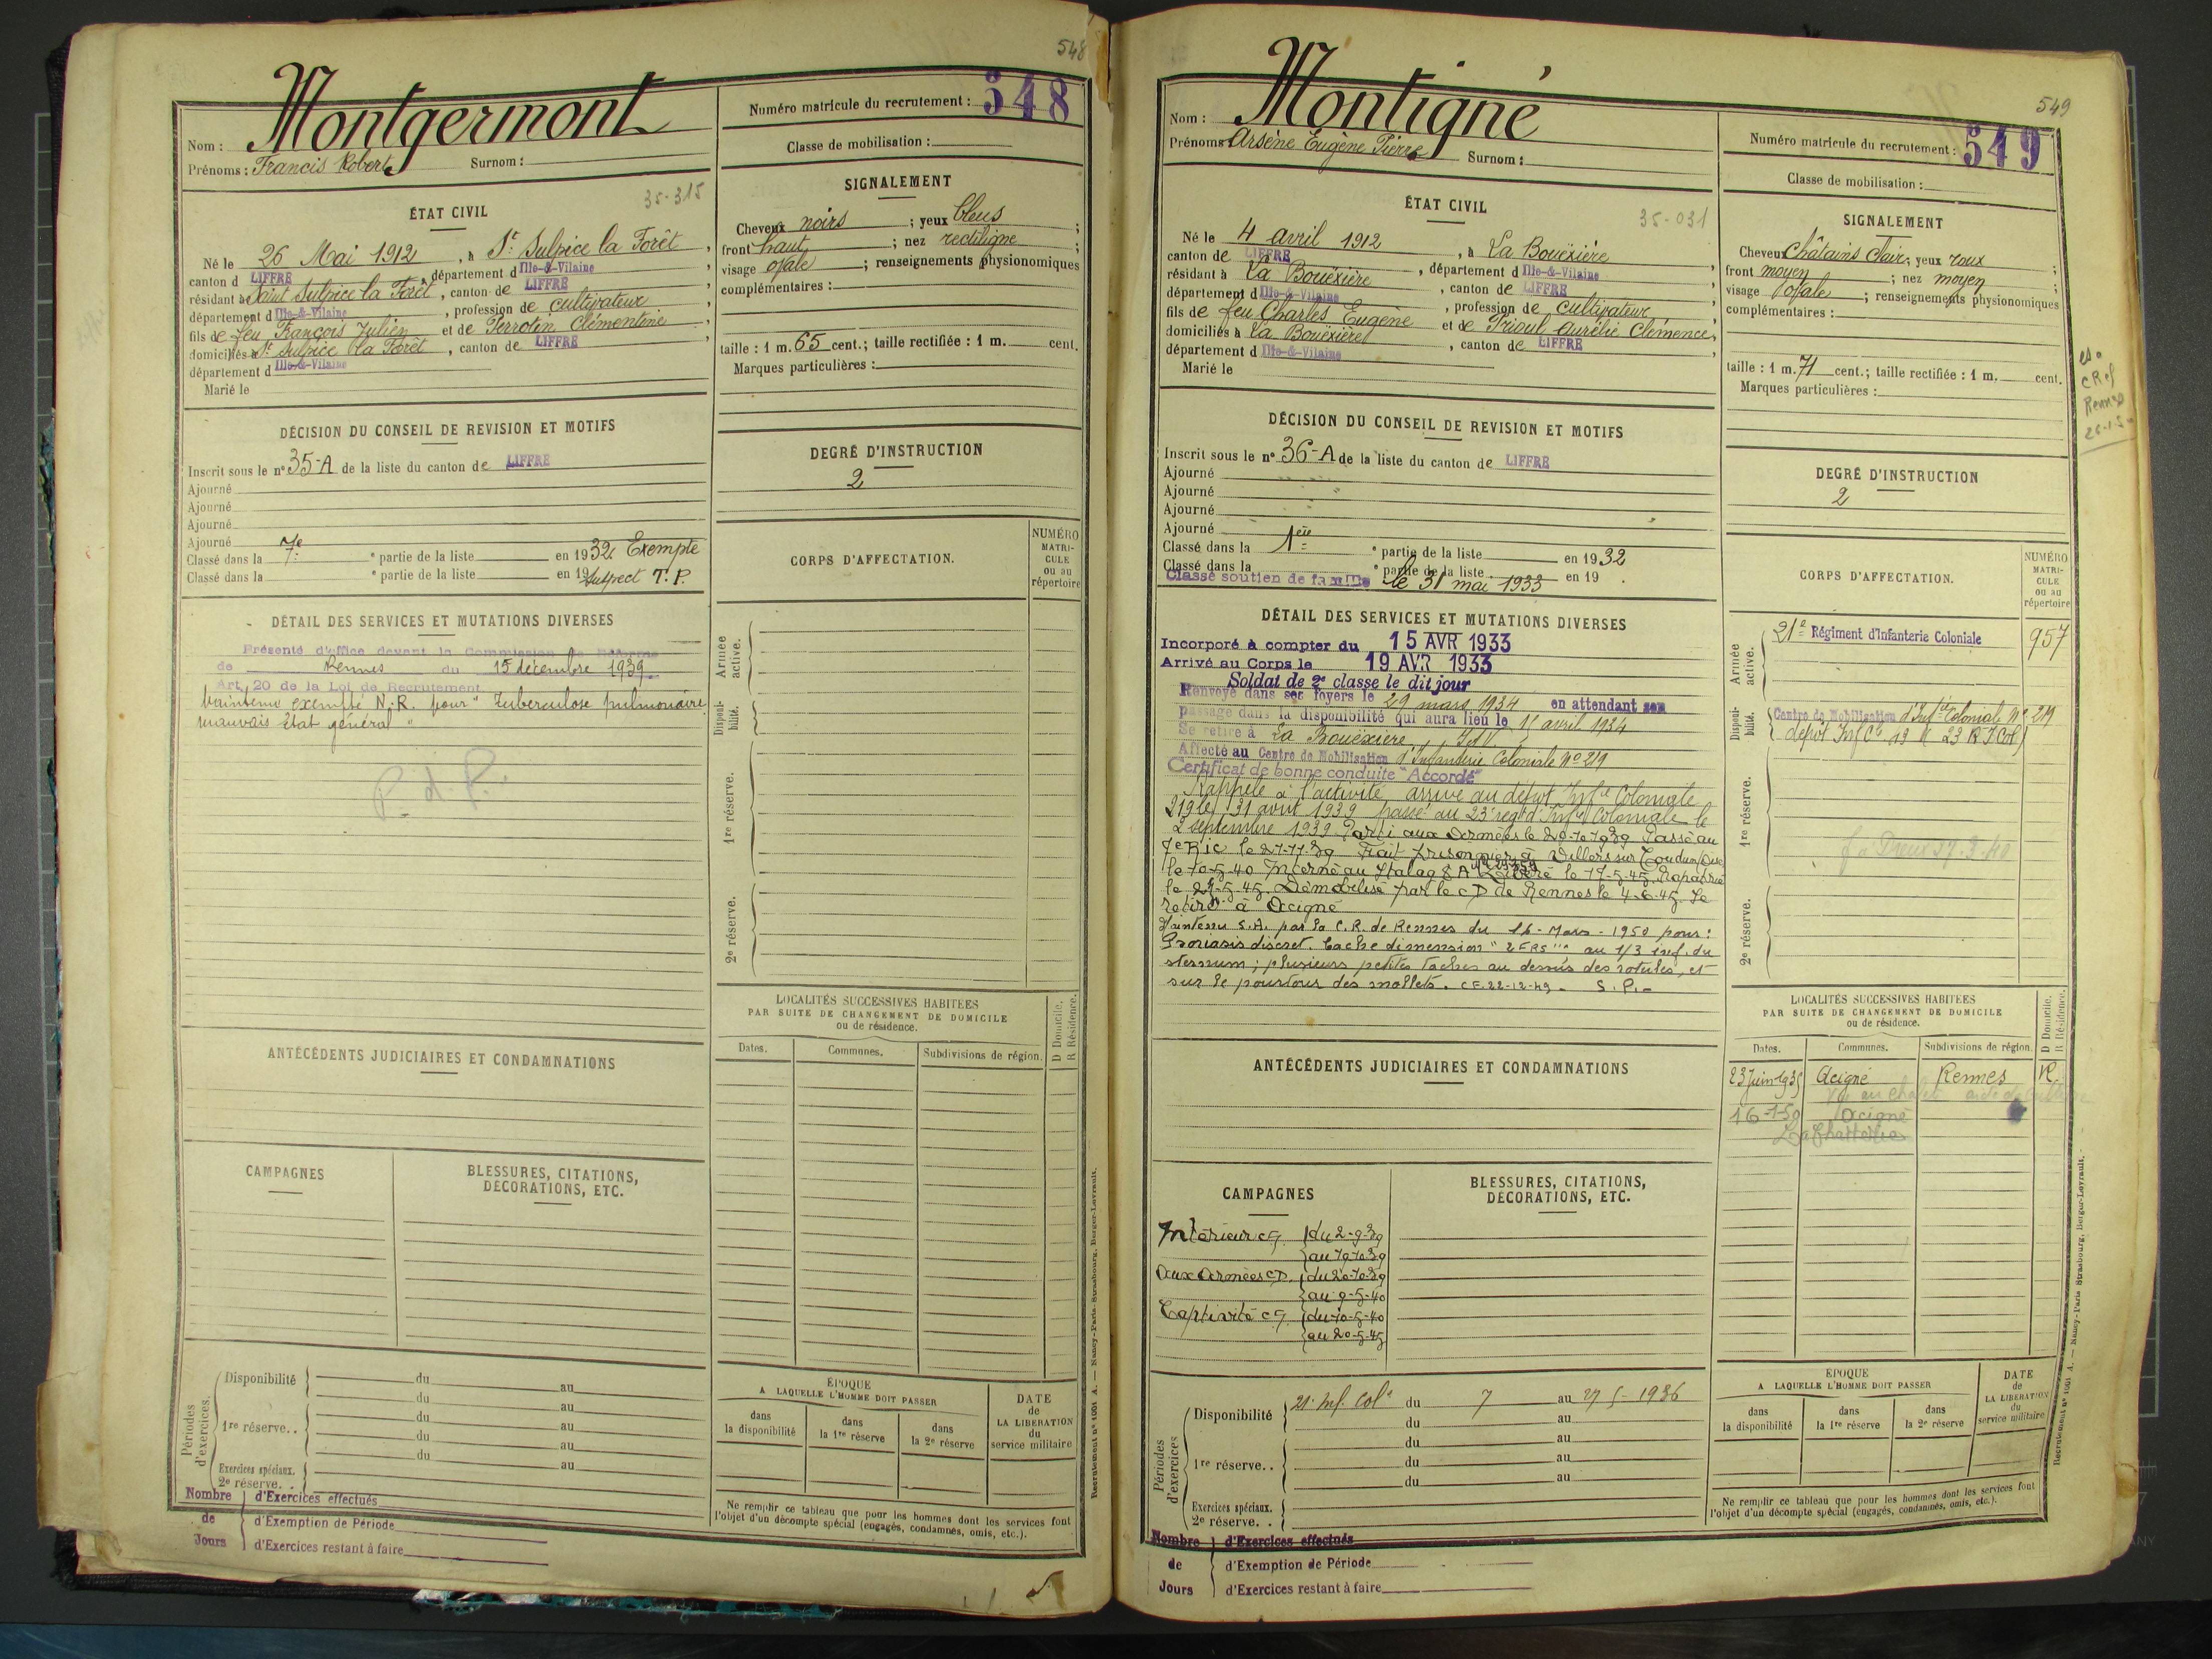 548
Nom : Montgermont
Prénoms : Francis Robert Surnom :
Numéro matricule du recrutement : 548
Classe de mobilisation :
ÉTAT CIVIL
35-315
Né le 26 Mai 1912, à St Sulpice la Forêt,
canton d LIFFRE, département d Ille-&-Vilaine,
résidant à Saint Sulpice la Forêt, canton de LIFFRE
département d Ille-&-Vilaine, profession de cultivateur
fils de feu François Julien et de Perrotin Clémentine,
domiciliés à St Sulpice la Forêt, canton de LIFFRE
département d Ille-&-Vilaine
Marié le
SIGNALEMENT
Cheveux noirs ; yeux bleus ;
front haut ; nez rectiligne ;
visage ovale ; renseignements physionomiques
complémentaires :
taille : 1 m. 65 cent.; taille rectifiée : 1 m. cent.
Marques particulières :
DÉCISION DU CONSEIL DE REVISION ET MOTIFS
Inscrit sous le n° 35-A de la liste du canton de LIFFRE
Ajourné
Ajourné
Ajourné
Ajourné
Classé dans la 7e e partie de la liste en 1932 Exempté
Classé dans la e partie de la liste en 19 Suspect T.P.
DEGRÉ D'INSTRUCTION
2
DÉTAIL DES SERVICES ET MUTATIONS DIVERSES
Présenté d'office devant la Commission de Réforme
de Rennes du 15 décembre 1939
Art. 20 de la Loi de Recrutement
Maintenu exempté N.R. pour " Tuberculose pulmonaire
mauvais état général "
P. d. P.
CORPS D'AFFECTATION.
NUMÉRO MATRI-CULE ou au répertoire
Armée active.
Disponi-bilité.
1re réserve.
2e réserve.
ANTÉCÉDENTS JUDICIAIRES ET CONDAMNATIONS
LOCALITÉS SUCCESSIVES HABITÉES
PAR SUITE DE CHANGEMENT DE DOMICILE
ou de résidence.
D Domicile.
R Résidence.
Dates. Communes. Subdivisions de région.
CAMPAGNES
BLESSURES, CITATIONS,
DÉCORATIONS, ETC.
Périodes d'exercices.
Disponibilité du au
du au
1re réserve.. du au
du au
du au
Exercices spéciaux.
2e réserve. .
Nombre d'Exercices effectués
de d'Exemption de Période
Jours d'Exercices restant à faire
ÉPOQUE
A LAQUELLE L'HOMME DOIT PASSER
dans la disponibilité
dans la 1re réserve
dans la 2e réserve
DATE de LA LIBERATION du service militaire
Ne remplir ce tableau que pour les hommes dont les services font
l'objet d'un décompte spécial (engagés, condamnés, omis, etc.).
Recrutement n° 1001 A. — Nancy-Paris-Strasbourg, Berger-Levrault.
549
Nom : Montigné
Prénoms Arsène Eugène Pierre Surnom :
Numéro matricule du recrutement : 549
Classe de mobilisation :
ÉTAT CIVIL
35-031
Né le 4 avril 1912, à La Bouëxière
canton de LIFFRE, département d Ille-&-Vilaine,
résidant à La Bouëxière, canton de LIFFRE
département d Ille-&-Vilaine, profession de cultivateur
fils de feu Charles Eugène et de Prioul Aurélie Clémence,
domiciliés à La Bouëxière, canton de LIFFRE
département d Ille-&-Vilaine
Marié le
SIGNALEMENT
Cheveu Châtains Clair; yeux roux ;
front moyen ; nez moyen ;
visage ovale ; renseignements physionomiques
complémentaires :
taille : 1 m. 71 cent.; taille rectifiée : 1 m. cent.
Marques particulières :
Rennes
DÉCISION DU CONSEIL DE REVISION ET MOTIFS
Inscrit sous le n° 36-A de la liste du canton de LIFFRE
Ajourné
Ajourné
Ajourné
Ajourné
Classé dans la 1ere e partie de la liste en 1932
Classé dans la e partie de la liste en 19 .
Classé soutien de famille le 31 mai 1933
DEGRÉ D'INSTRUCTION
2
DÉTAIL DES SERVICES ET MUTATIONS DIVERSES
Incorporé à compter du 15 AVR 1933
Arrivé au Corps le 19 AVR 1933
Soldat de 2e classe le dit jour
Renvoyé dans ses foyers le 29 mars 1934 en attendant son
passage dans la disponibilité qui aura lieu le 15 avril 1934
Se retire à La Bouëxière, I.&V.
Affecté au Centre de Mobilisation d'Infanterie Coloniale N° 219
Certificat de bonne conduite "Accordé"
Rappelé à l'activité arrive au dépôt Infie Coloniale
219 le 31 août 1939 passé au 23e regt d'Infie Coloniale le
2 septembre 1939 Parti aux Armées le 20-10-1939 Passé au
7e RIC le 27-11-39 Fait prisonnier à Villers sur Coudun (Oise)
le 10-5-40 Interné au Stalag 8 A Libéré le 17-5-45. Rapatrié
le 21-5-45. Démobilisé par le CD de Rennes le 4-6-45. Se
retire à Acigné
Maintenu S.A. par la C.R. de Rennes du 16 - Mars - 1950 pour :
Psoriasis discret. Tache dimension " 2 FRS "" au 1/3 inf. du
sternum ; plusieurs petites taches au dessus des rotules, et
sur le pourtour des mollets. CF.22-12-49. S.P.-
CORPS D'AFFECTATION.
NUMÉRO MATRI-CULE ou au répertoire
Armée active.
21e Régiment d'Infanterie Coloniale 957
Disponi-bilité.
Centre de Mobilisation d'Infie Coloniale N° 219
dépôt Inf Cle 19 (23 R I Col)
1re réserve.
2e réserve.
ANTÉCÉDENTS JUDICIAIRES ET CONDAMNATIONS
LOCALITÉS SUCCESSIVES HABITEES
PAR SUITE DE CHANGEMENT DE DOMICILE
ou de résidence.
D Domicile.
R Résidence.
Dates. Communes. Subdivisions de région.
23 Juin 1935 Acigné Rennes R.
16-1-50 Acigné
CAMPAGNES
Intérieur CS. du 2-9-39
au 19-10-39
Aux Armées CD. du 20-10-39
au 9-5-40
Captivité CS. du 10-5-40
au 20-5-45
BLESSURES, CITATIONS,
DÉCORATIONS, ETC.
Périodes d'exercices
Disponibilité 21e Inf. Colle du 7 au 27 5 - 1936
du au
1re réserve. . du au
du au
du au
Exercices spéciaux.
2e réserve. .
Nombre d'Exercices effectués
de d'Exemption de Période
Jours d'Exercices restant à faire
ÉPOQUE
A LAQUELLE L'HOMME DOIT PASSER
dans la disponibilité
dans la 1re réserve
dans la 2e réserve
DATE de LA LIBERATION du service militaire
Ne remplir ce tableau que pour les hommes dont les services font
l'objet d'un décompte spécial (engagés, condamnés, omis, etc.).
Recrutement n° 1001 A. — Nancy-Paris-Strasbourg, Berger-Levrault.